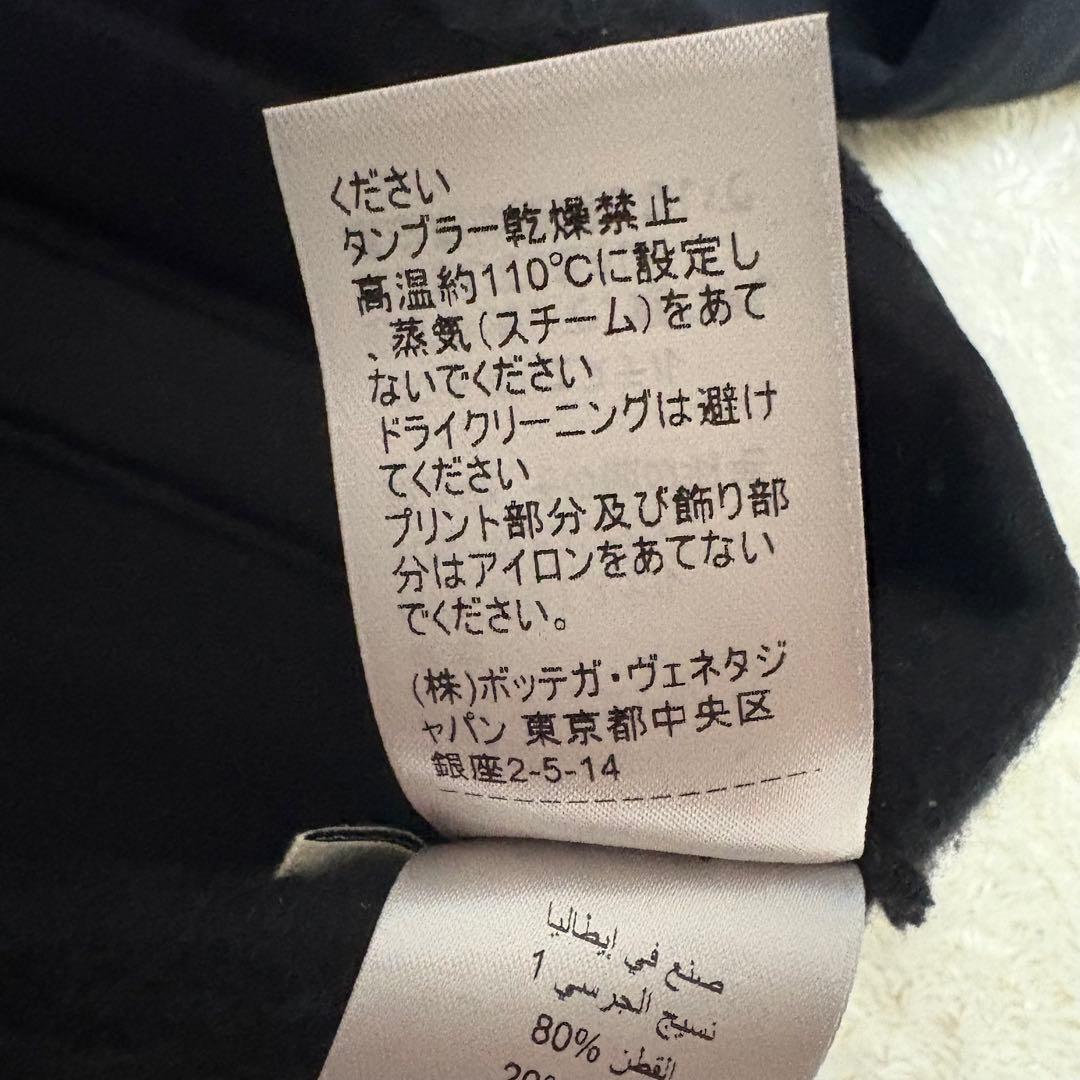 ください
タンブラー乾燥禁止
高温約110℃に設定し
、蒸気(スチーム)をあて
ないでください
ドライクリーニングは避け
てください
プリント部分及び飾り部
分はアイロンをあてない
でください。
(株)ボッテガ・ヴェネタジ
ャパン 東京都中央区
銀座2-5-14
صنع في إيطاليا
نسيج الجرسي 1
80% القطن